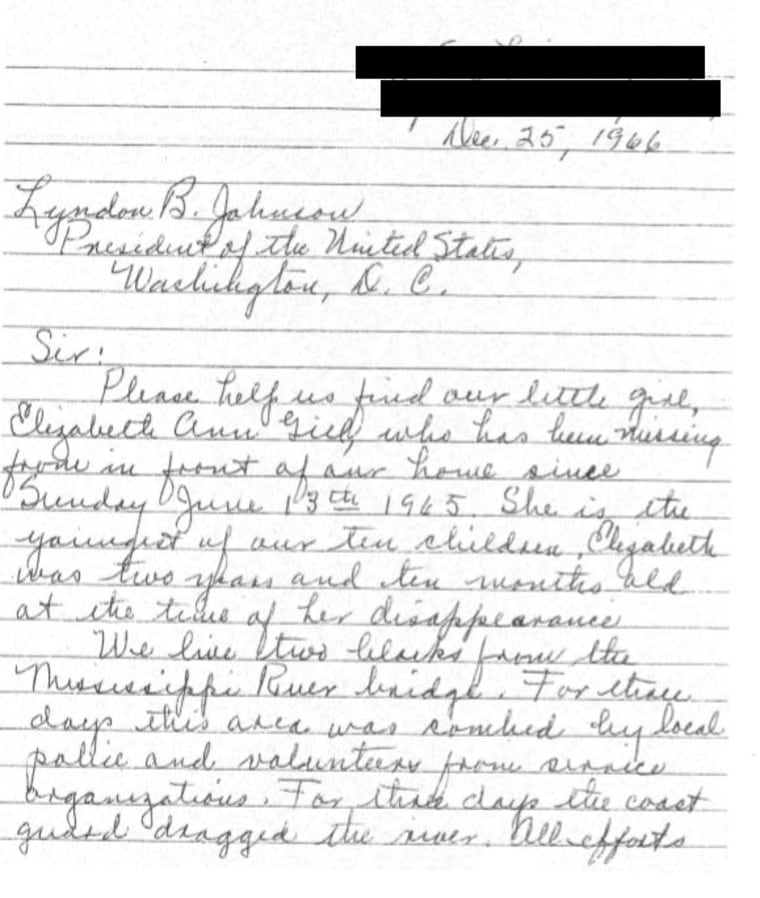 Dec. 25, 1966
Lyndon B. Johnson
President of the United States,
Washington, D. C.
Sir:
Please help us find our little girl,
Elizabeth Ann Gill, who has been missing
from in front of our home since
Sunday June 13th 1965. She is the
youngest of our ten children. Elizabeth
was two years and ten months old
at the time of her disappearance
We live two blocks from the
Mississippi River bridge. For three
days this area was combed by local
police and volunteers from service
organizations. For three days the coast
guard dragged the river. All efforts